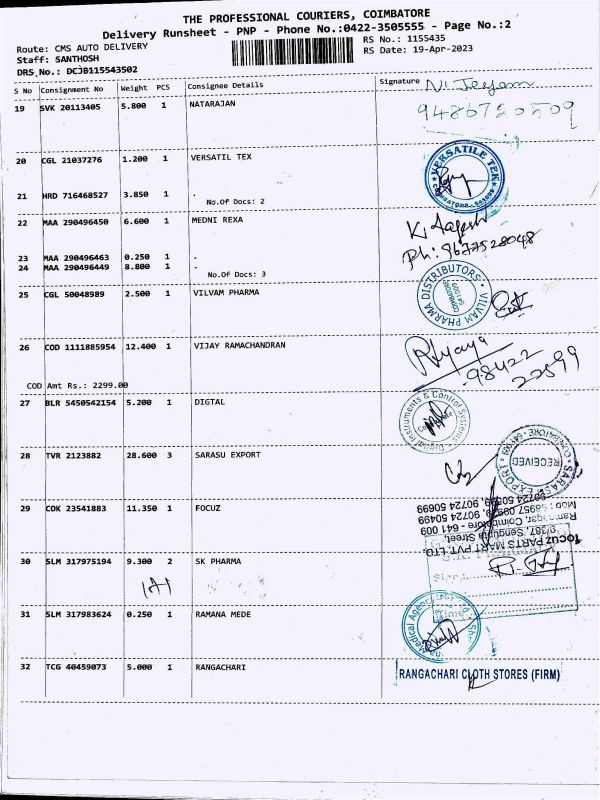 THE PROFESSIONAL COURIERS, COIMBATORE
Delivery Runsheet - PNP - Phone No.:0422-3505555 - Page No.:2
Route: CMS AUTO DELIVERY
Staff: SANTHOSH
DRS.No.: DCJB115543502
RS No.: 1155435
RS Date: 19-Apr-2023
S No Consignment No Weight PCS Consignee Details Signature
19 SVK 20113405 5.800 1 NATARAJAN
N. Jeyam
9486720509
20 CGL 21037276 1.200 1 VERSATIL TEX
VERSATILE TEK
21 HRD 716468527 3.850 1 .
No.Of Docs: 2
22 MAA 290496450 6.600 1 MEDNI REXA
Ph: 9677528048
23 MAA 290496463 0.250 1 .
24 MAA 290496449 8.800 1 .
No.Of Docs: 3
25 CGL 50048989 2.500 1 VILVAM PHARMA
VILVAM PHARMA DISTRIBUTORS
COIMBATORE
26 COD 1111885954 12.400 1 VIJAY RAMACHANDRAN
R Vijaya
98422
22599
COD Amt Rs.: 2299.00
27 BLR 5450542154 5.200 1 DIGTAL
Digital Instruments & Control Systems
28 TVR 2123882 28.600 3 SARASU EXPORT
SARASU EXPORT
RECEIVED
29 COK 23541883 11.350 1 FOCUZ
FOCUZ PARTS MART PVT. LTD.
Coimbatore - 641 009
90724 50499
90724 50699
30 SLM 317975194 9.300 2 SK PHARMA
31 SLM 317983624 0.250 1 RAMANA MEDE
Medical Agency
32 TCG 40459073 5.000 1 RANGACHARI
RANGACHARI CLOTH STORES (FIRM)